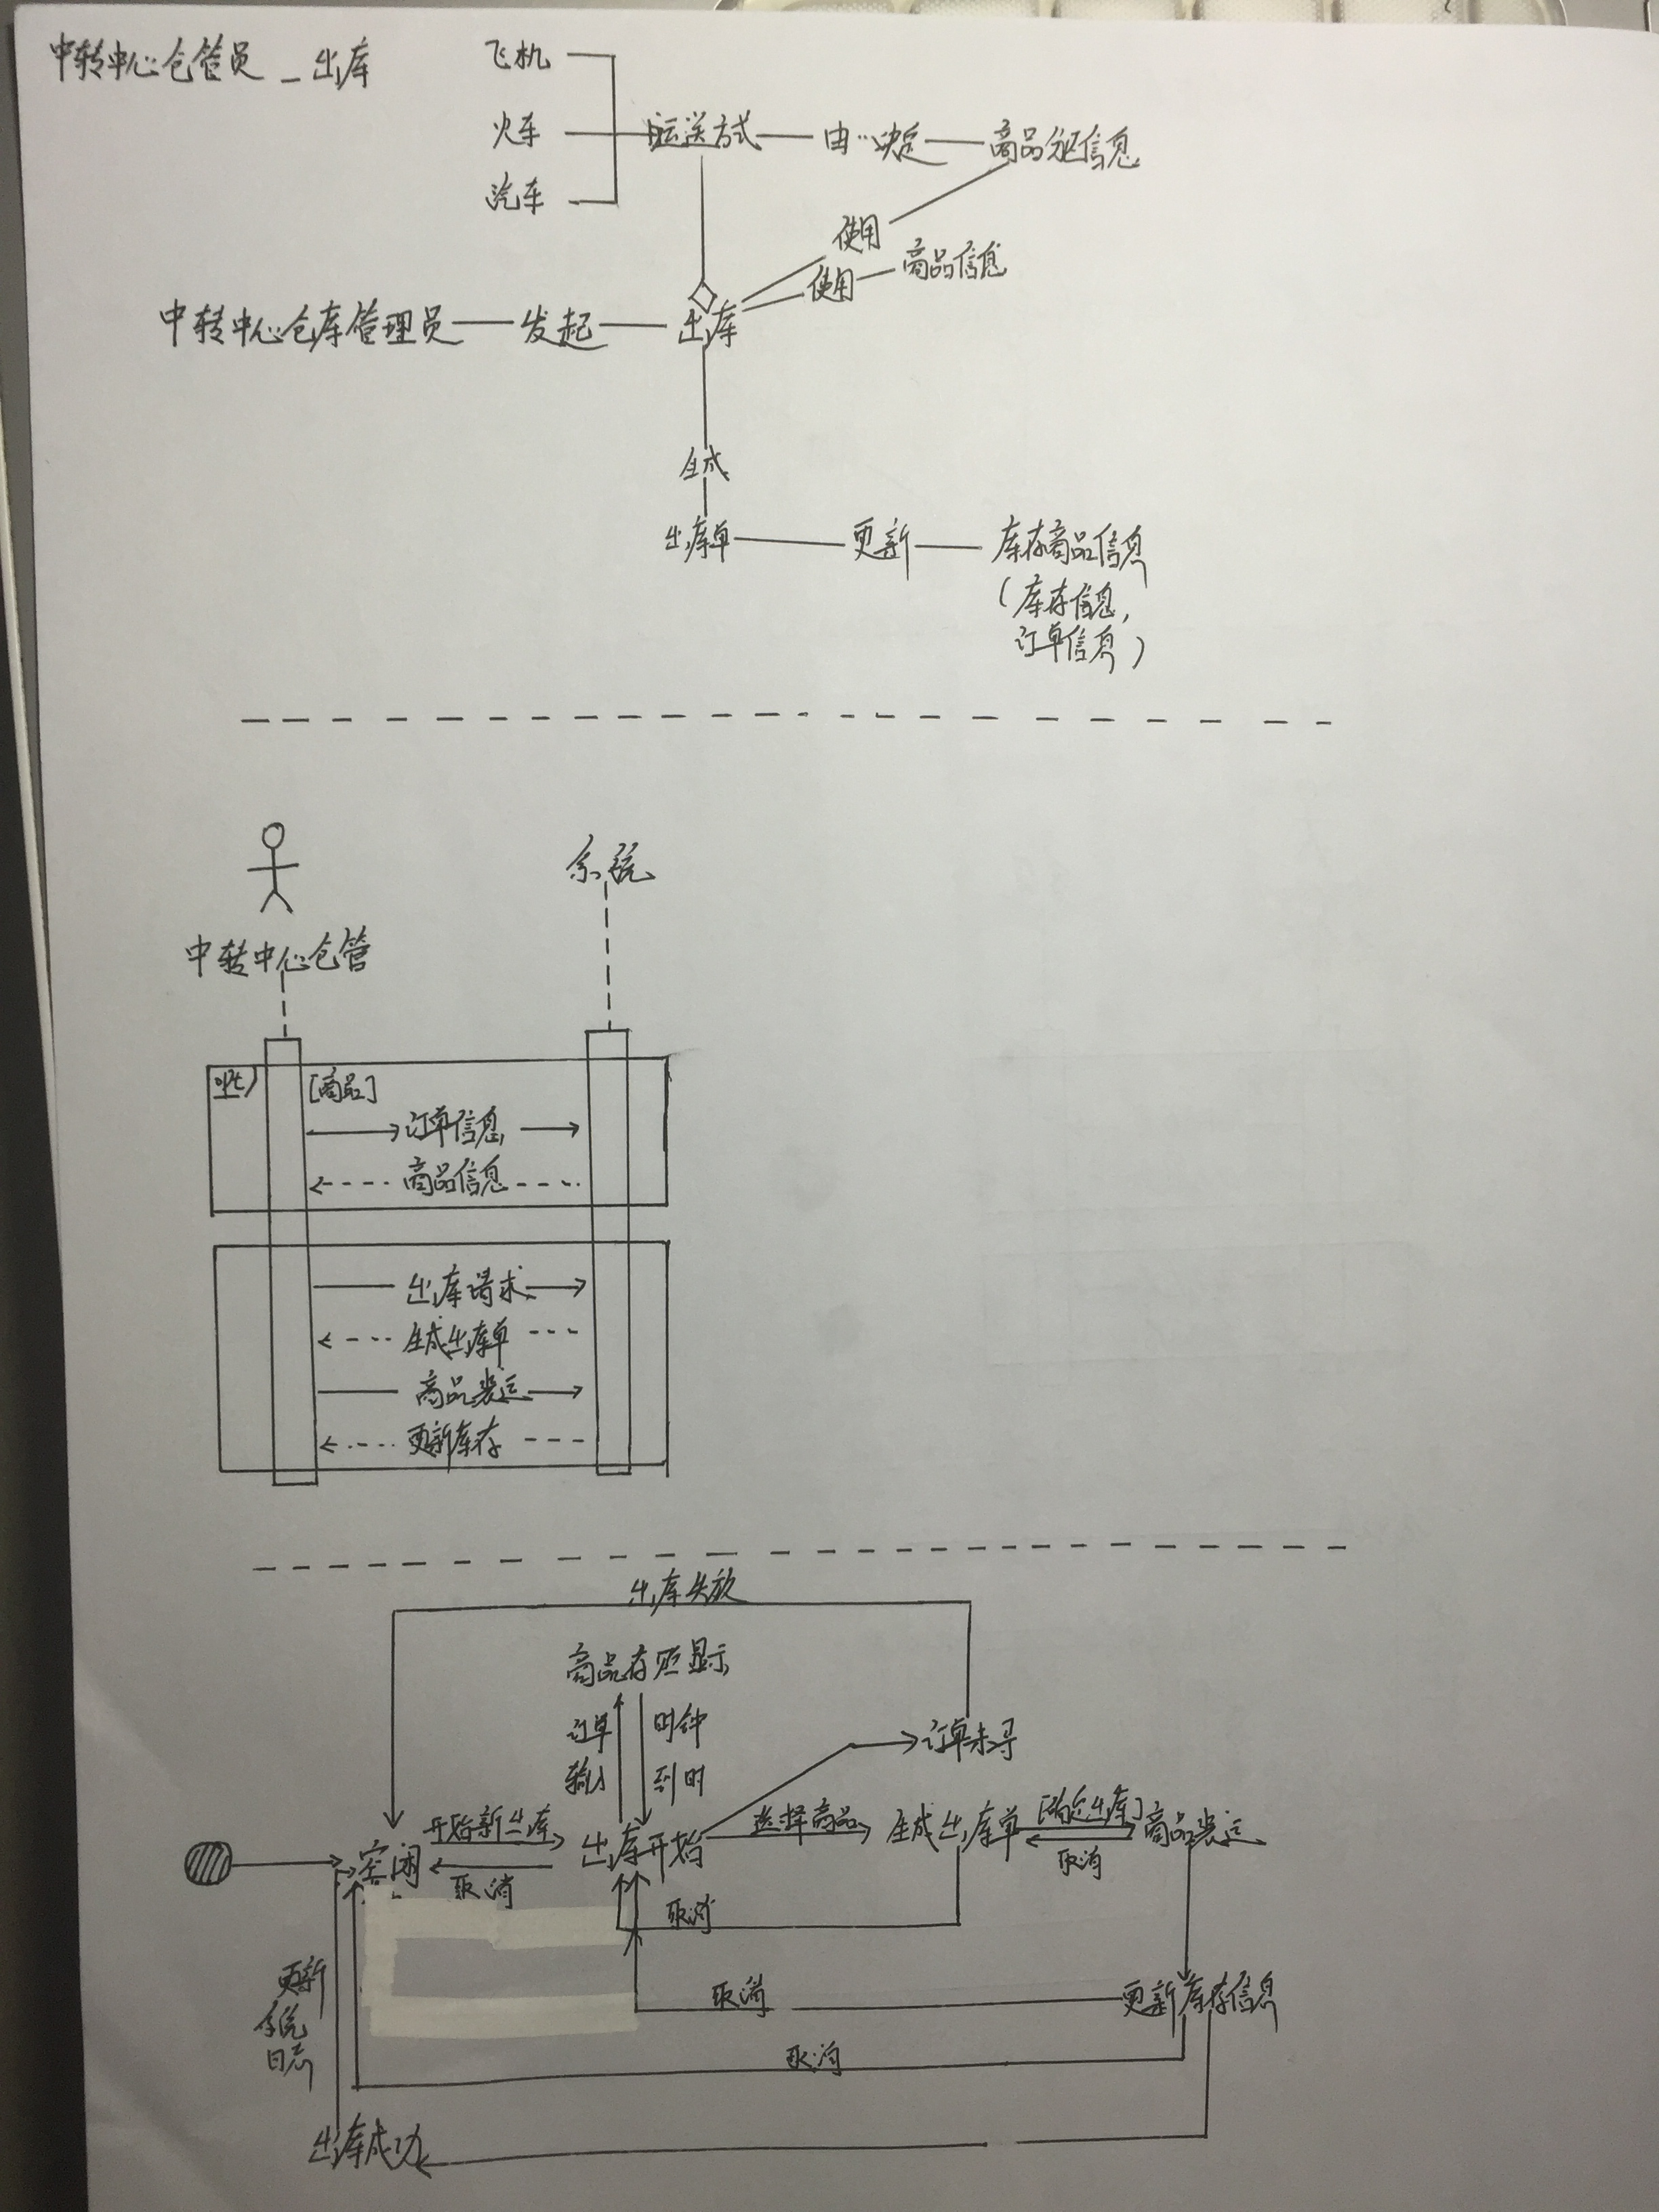 中转中心仓管员_出库
飞机
火车
汽车
运送方式
由…决定
商品分区信息
使用
使用
商品信息
中转中心仓库管理员
发起
出库
生成
出库单
更新
库存商品信息
(库存信息,
订单信息)
系统
中转中心仓管
[商品]
订单信息
商品信息
出库请求
生成出库单
商品装运
更新库存
出库失败
商品存 显示
订单
输入
时钟
到时
订单未寻
开始新出库
选择商品
[确定出库]
空闲
出库开始
生成出库单
商品装运
取消
取消
取消
更新
系统
日志
取消
更新库存信息
取消
出库成功